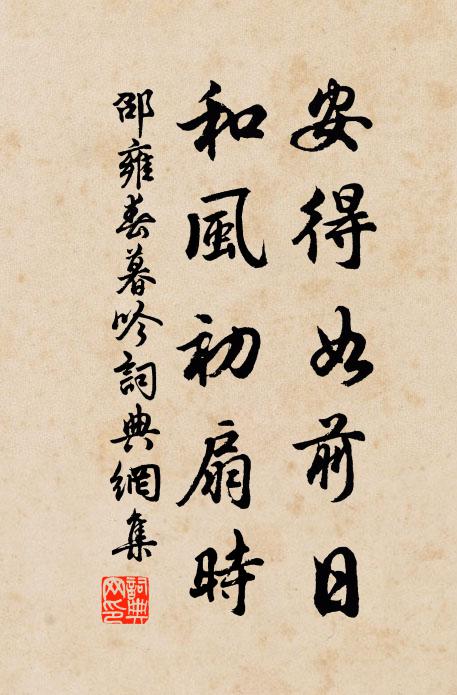 安得如前日
和風初扇時
邵雍春暮吟詞典網集
詞典
网印